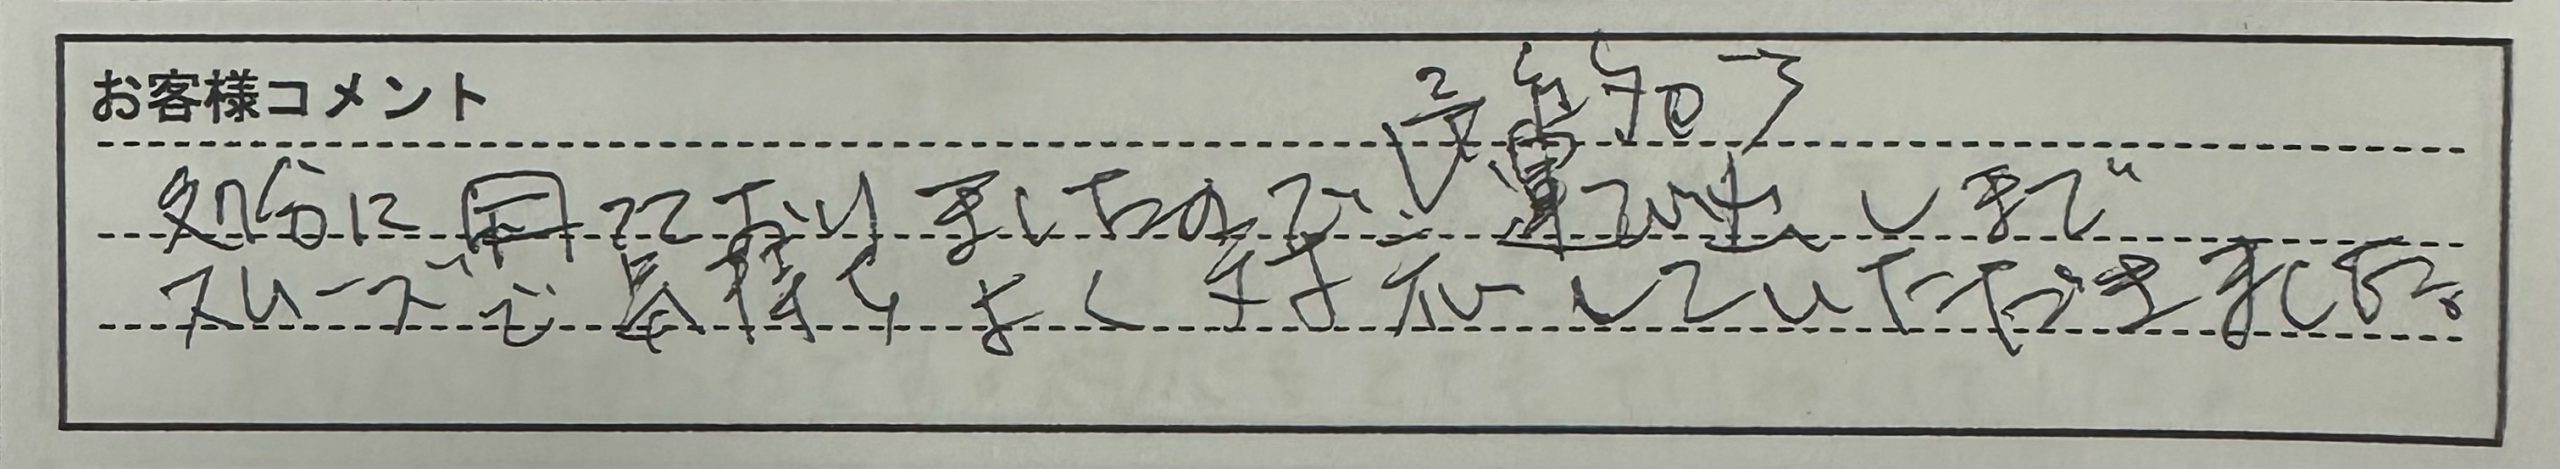 お客様コメント
処分に困っておりましたので、運び出しまで
スムーズで気持ちよく対応していただきました。